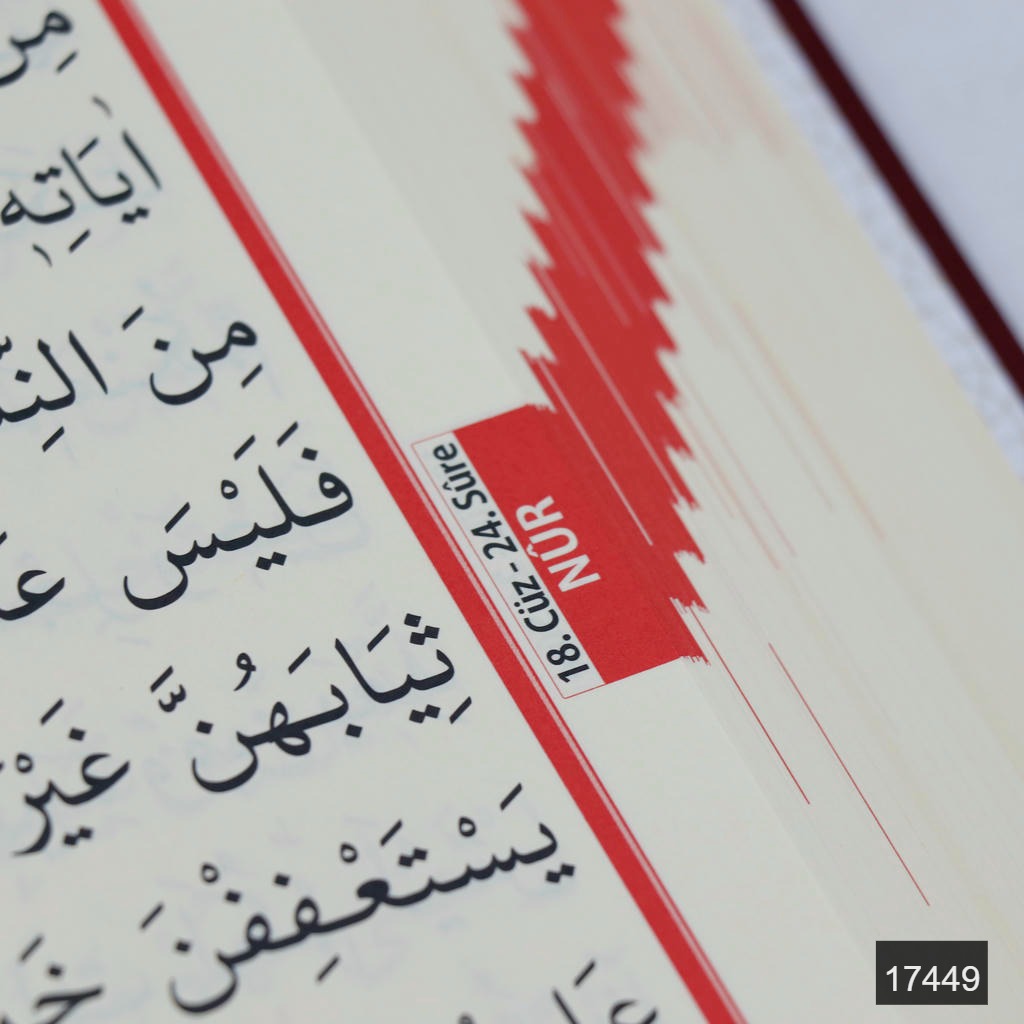 اٰيَاتِه۪
مِنَ
فَلَيْسَ
ثِيَابَهُنَّ غَيْرَ
يَسْتَعْفِفْنَ
18. Cüz - 24. Sûre
NÛR
17449